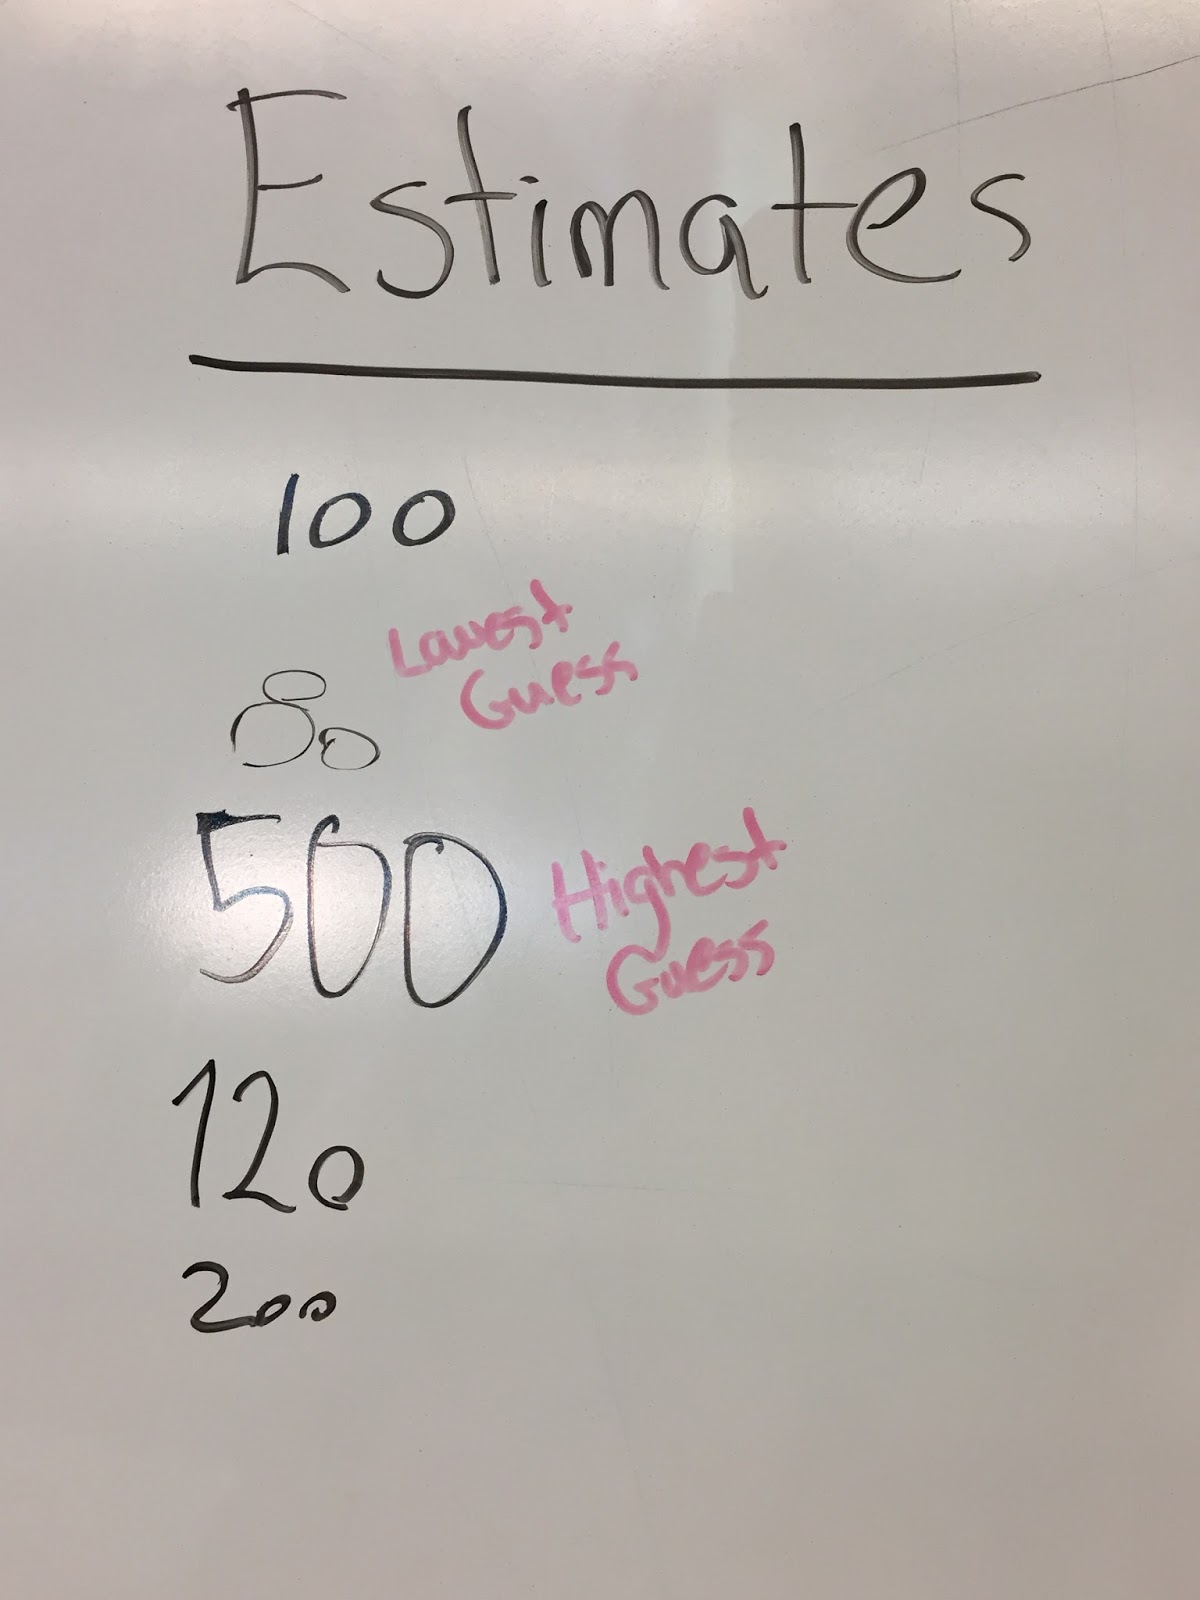 Estimates
100
Lowest
Guess
80
500
Highest
Guess
120
200